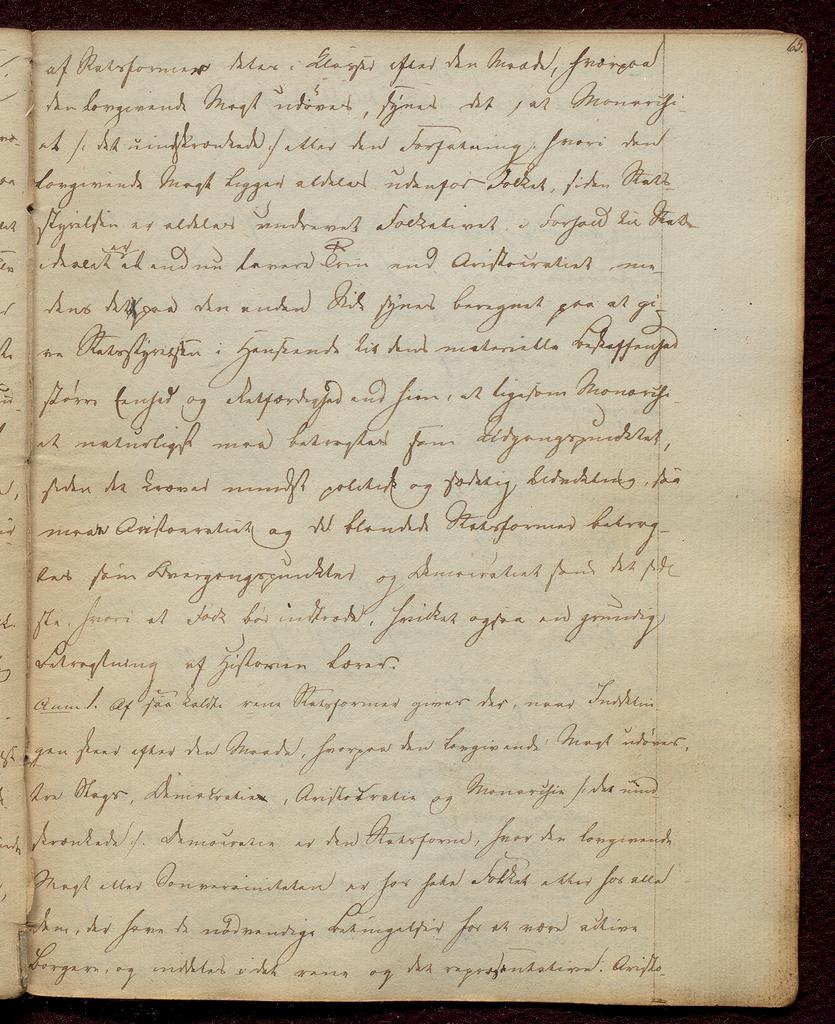 65.
af Statsformer deles i Klasser efter den Maade, hvorpaa
den lovgivende Magt udøves, synes det, at Monarchi-
et /: det uindskrænkede :/ eller den Forfatning, hvori den
lovgivende Magt ligger aldeles udenfor Folket, siden Stats-
styrelsen er aldeles undraget Folkelivet, i Forhold til Stats-
idealet er et endnu lavere Trin end Aristocratiet me-
dens det paa den anden Side synes beregnet paa at gi-
ve Statsstyrelsen i Henseende til dens materielle Beskaffenhed
større Eenhed og Retfærdighed end hiin, at ligesom Monarchi-
et naturligst maa betragtes som Udgangspunctet,
siden det kræver mindst politisk og sædelig Udvikling, saa
maae Aristocratiet og de blandede Statsformer betrag-
tes som Overgangspunkter og Democratiet som det sid-
ste, hvori et Folk bør indtræde, hvilket ogsaa en grundig
Betragtning af Historien lærer.
Anm 1. Af saa kaldte rene Statsformer gives der, naar Inddelin-
gen skeer efter den Maade, hvorpaa den lovgivende Magt udøves,
tre Slags, Democratie, Aristocratie og Monarchie /: det uind-
skrænkede :/. Democratie er den Statsform, hvor den lovgivende
Magt eller Souverainiteten er hos hele Folket eller hos alle
dem, der have de nødvendige Betingelser for at være active
Borgere, og inddeles i det rene og det repræsentative. Aristo-